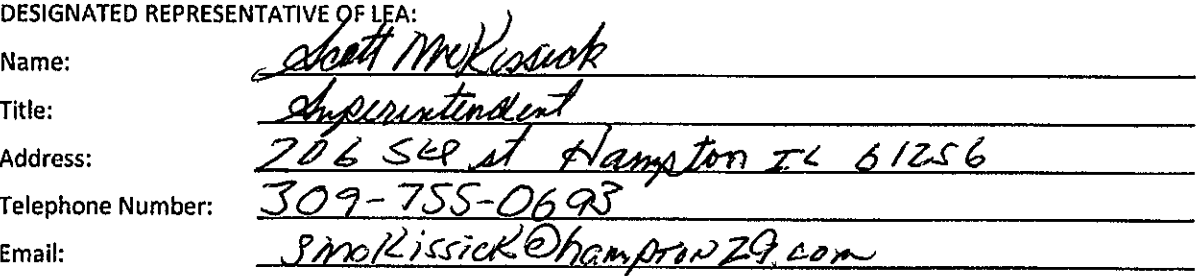 DESIGNATED REPRESENTATIVE OF LEA:
Name: Scott McKissick
Title: Superintendent
Address: 206 5th st Hampton IL 61256
Telephone Number: 309-755-0693
Email: smcKissick@hampton29.com